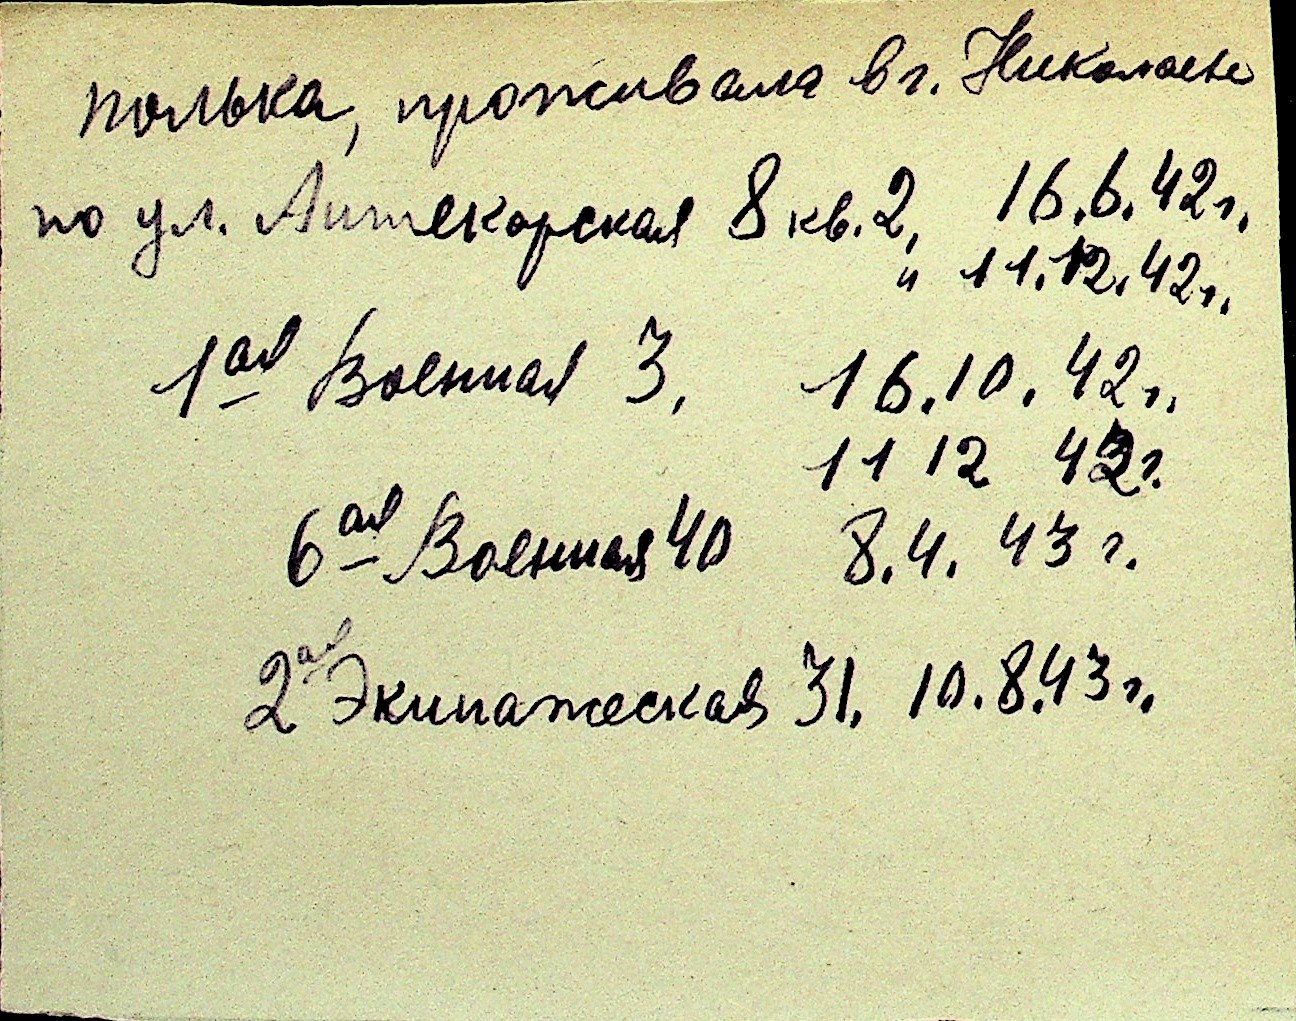 полька, проживала в г. Николаеве
по ул. Аптекарская 8 кв. 2, 16.6.42г.
" 11.12.42г.
1ая Военная 3, 16.10.42г.
11 12 42г.
6ая Военная 40 8.4.43г.
2ая Экипажеская 31. 10.8.43г.